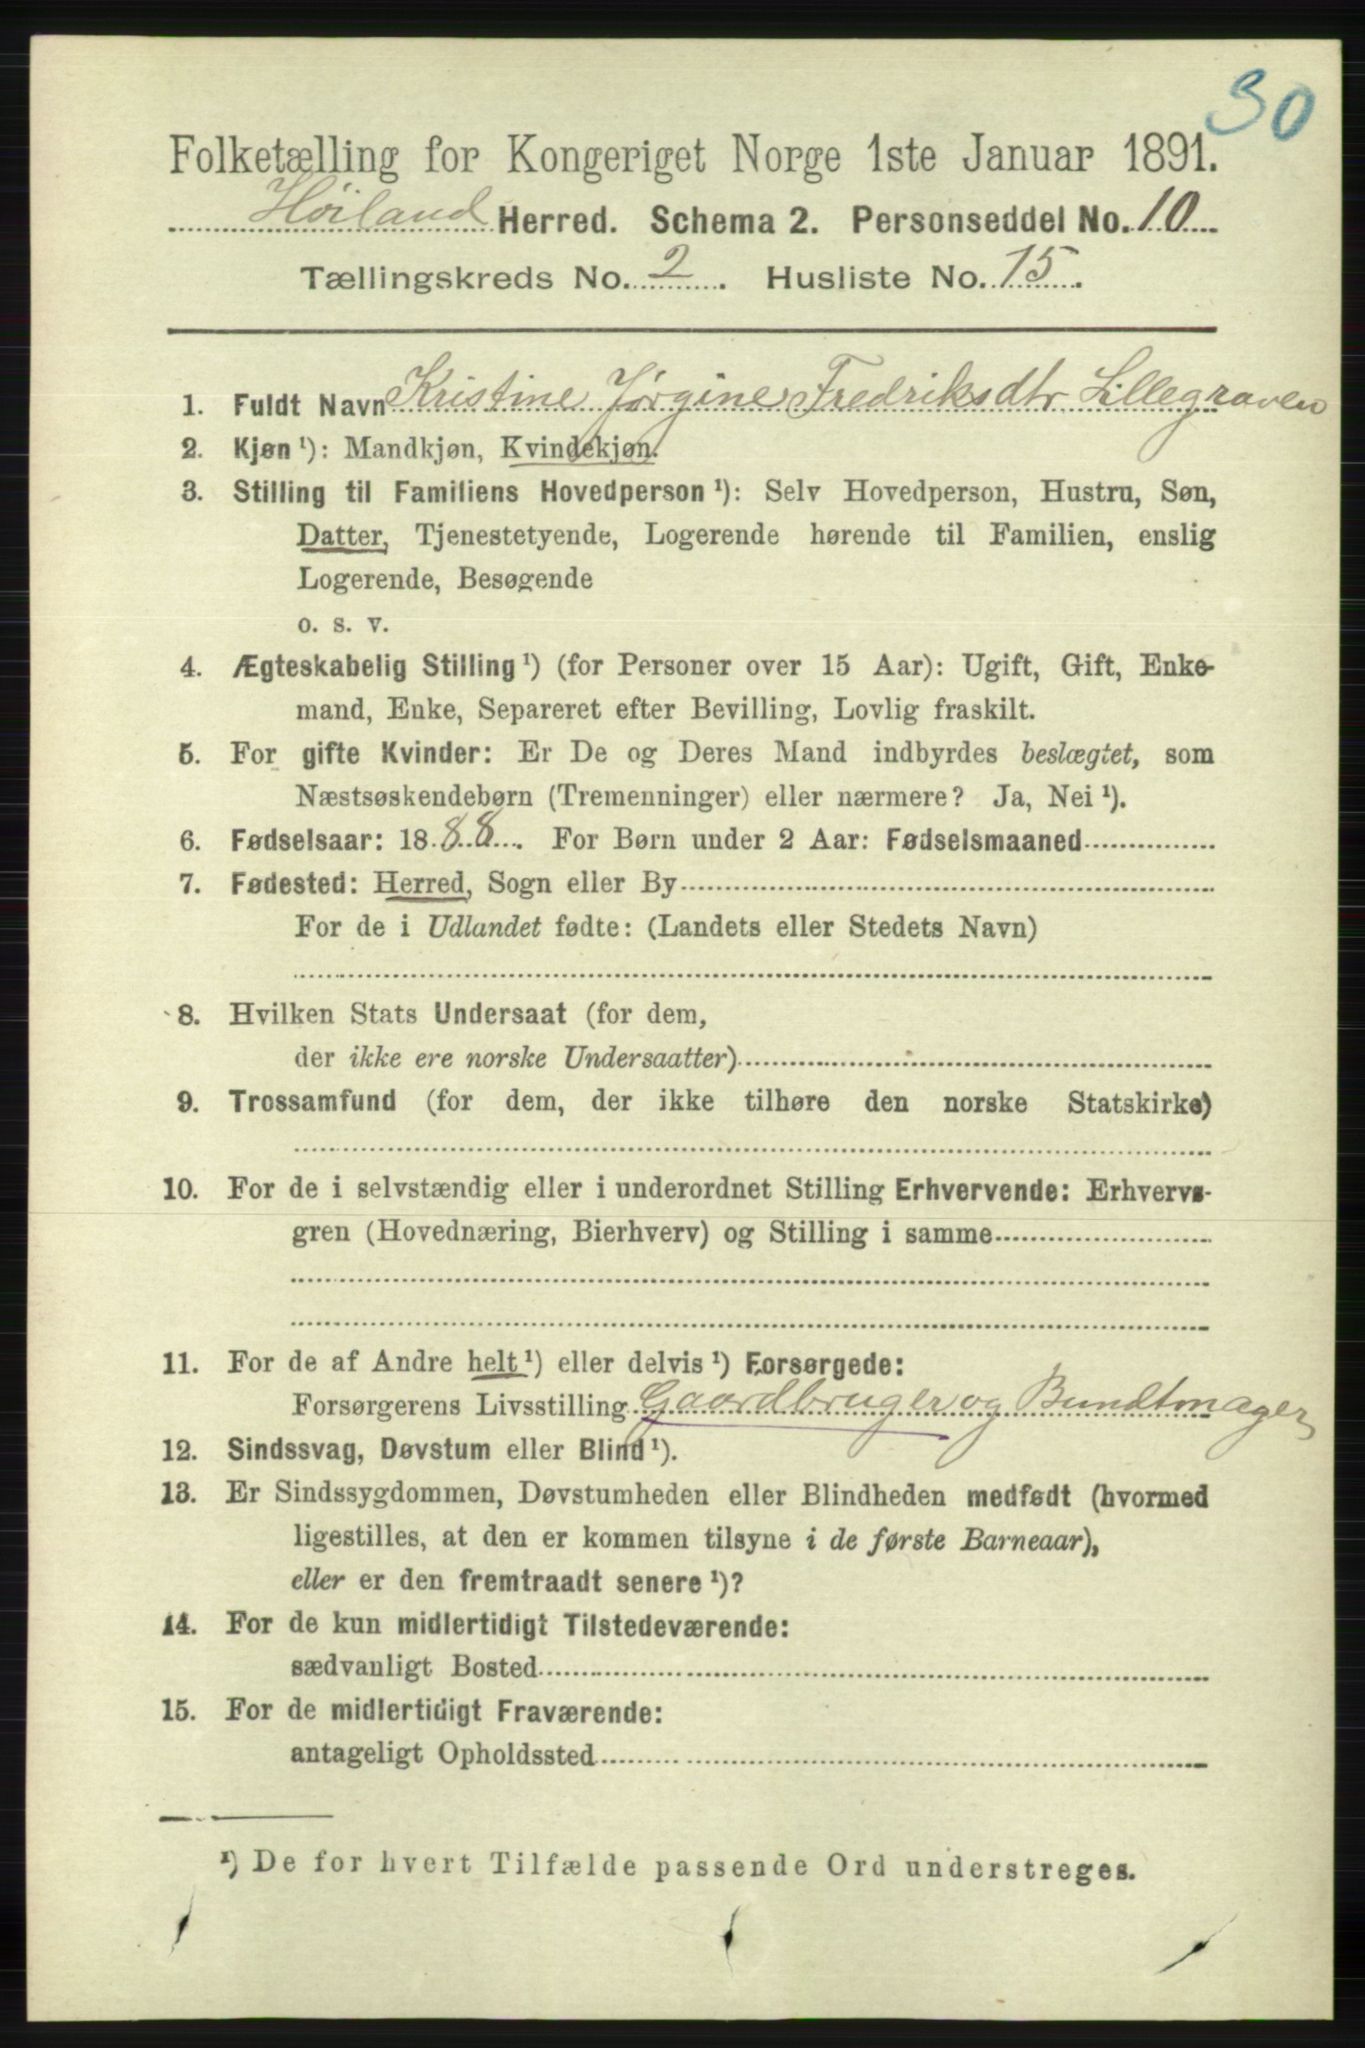 30
Folketælling for Kongeriget Norge 1ste Januar 1891.
Höiland Herred. Schema 2. Personseddel No. 10
Tællingskreds No. 2. Husliste No. 15.
1. Fuldt Navn Kristine Jørgine Fredriksdtr. Lillegraven
2. Kjøn ¹): Mandkjøn, Kvindekjøn.
3. Stilling til Familiens Hovedperson ¹): Selv Hovedperson, Hustru, Søn,
Datter, Tjenestetyende, Logerende hørende til Familien, enslig
Logerende, Besøgende
o. s. v.
4. Ægteskabelig Stilling ¹) (for Personer over 15 Aar): Ugift, Gift, Enke-
mand, Enke, Separeret efter Bevilling, Lovlig fraskilt.
5. For gifte Kvinder: Er De og Deres Mand indbyrdes beslægtet, som
Næstsøskendebørn (Tremenninger) eller nærmere? Ja, Nei ¹).
6. Fødselsaar: 1888. For Børn under 2 Aar: Fødselsmaaned
7. Fødested: Herred, Sogn eller By
For de i Udlandet fødte: (Landets eller Stedets Navn)
8. Hvilken Stats Undersaat (for dem,
der ikke ere norske Undersaatter)
9. Trossamfund (for dem, der ikke tilhøre den norske Statskirke)
10. For de i selvstændig eller i underordnet Stilling Erhvervende: Erhvervs-
gren (Hovednæring, Bierhverv) og Stilling i samme
11. For de af Andre helt ¹) eller delvis ¹) Forsørgede:
Forsørgerens Livsstilling Gaardbruger og Bundtmager
12. Sindssvag, Døvstum eller Blind ¹).
13. Er Sindssygdommen, Døvstumheden eller Blindheden medfødt (hvormed
ligestilles, at den er kommen tilsyne i de første Barneaar),
eller er den fremtraadt senere ¹)?
14. For de kun midlertidigt Tilstedeværende:
sædvanligt Bosted
15. For de midlertidigt Fraværende:
antageligt Opholdssted
¹) De for hvert Tilfælde passende Ord understreges.